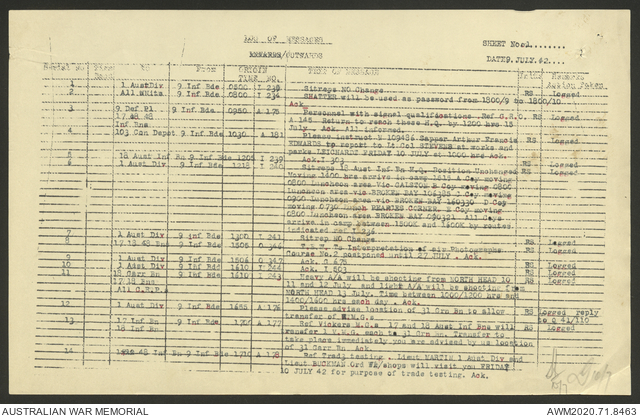 LOG OF MESSAGES
SHEET No
INWARDS/OUTWARDS
DATE 9 JULY 42
Serial No Time TO FROM ORIGIN TIME NO. TEXT OF MESSAGE REMARKS Action Taken
1 1 AustDiv 9 Inf Bde 0500 I 239 Sitrep NO Change RS Logged
2 All Units 9 Inf Bde 0800 I 234 SHATTER will be used as password from 1800/9 to 1800/10 RS Logged
Ack.
3 9 Def Pl 9 Inf Bde 0950 A 175 Personnel with signal qualifications Ref G.R.O. RS Logged
17 48 48 A 145 Return to reach these H.Q. by 1200 hrs 15
Inf Bns July . Ack. All informed.
4 103 Con Depot 9 Inf Bde 1030 A 181 Please instruct N 109486 Sapper Arthur Francis RS Logged
EDWARDS to report to Lt Col STEVENS at works and
parks LEICHARDT FRIDAY 10 JULY at 1000 hrs Ack.
5 18 Aust Inf Bn 9 Inf Bde 1205 I 239 Ack.I 303
6 1 Aust Div 9 Inf Bde 1218 Sitrep 18 Aust Inf Bn H.Q. Position Unchanged RS Logged
Moving 1400 hrs arrive in camp 1615 A Coy moving
0800 Luncheon area vic GALSTON B Coy moving 0800
Luncheon area vic BROKEN BAY C Coy moving
0900 Luncheon area vic BROKEN BAY 160330 D Coy
moving 0730 Lunch PEARCES CORNER E Coy moving
0800 Luncheon area BROKEN BAY
arrive in camp between 1500K and 1600K by routes
indicated ref
7 1 Aust Div 9 Inf Bde 1300 I 241 Sitrep NO Change RS Logged
8 17 18 48 Bns 9 Inf Bde 1505 O 346 Interpretation of air Photographs RS Logged
Course No.2 postponed until 27 JULY . Ack.
9 1 Aust Div 9 Inf Bde 1506 O 347 Ack. O 676 RS Logged
10 1 Aust Div 9 Inf Bde 1610 I 244 Ack. I 503 RS Logged
11 18 Carr Bn 9 Inf Bde 1610 I 243 Heavy A/A will be shooting from NORTH HEAD 10 RS Logged
17 18 Bns 11 and 12 July and light A/A will be shooting from
All C.R.Ps NORTH HEAD 13 July. Time between 1000/1200 hrs and
1400/1600 hrs each day . Ack.
12 1 Aust Div 9 Inf Bde 1655 A 176 Please advise location of 31 Grn Bn to allow RS Logged reply
transfer of M.M.Gs to O 41/110
13 17 Inf Bn 9 Inf Bde 1700 A 177 Ref Vickers M.G.s 17 and 18 Aust Inf Bns will RS Logged
18 Inf Bn transfer 1 V.M.G. each to 31 Grn Bn. Transfer to
take place immediately you are advised by us location
of 31 Garr Bn Ack
14 48 Inf Bn 9 Inf Bde 1710 A 178 Ref Trade testing . Lieut MARTIN 1 Aust Div and
Lieut BUCKMAN Ord W/shops will visit you FRIDAY
10 JULY 42 for purpose of trade testing. Ack.
AUSTRALIAN WAR MEMORIAL
AWM2020.71.8463